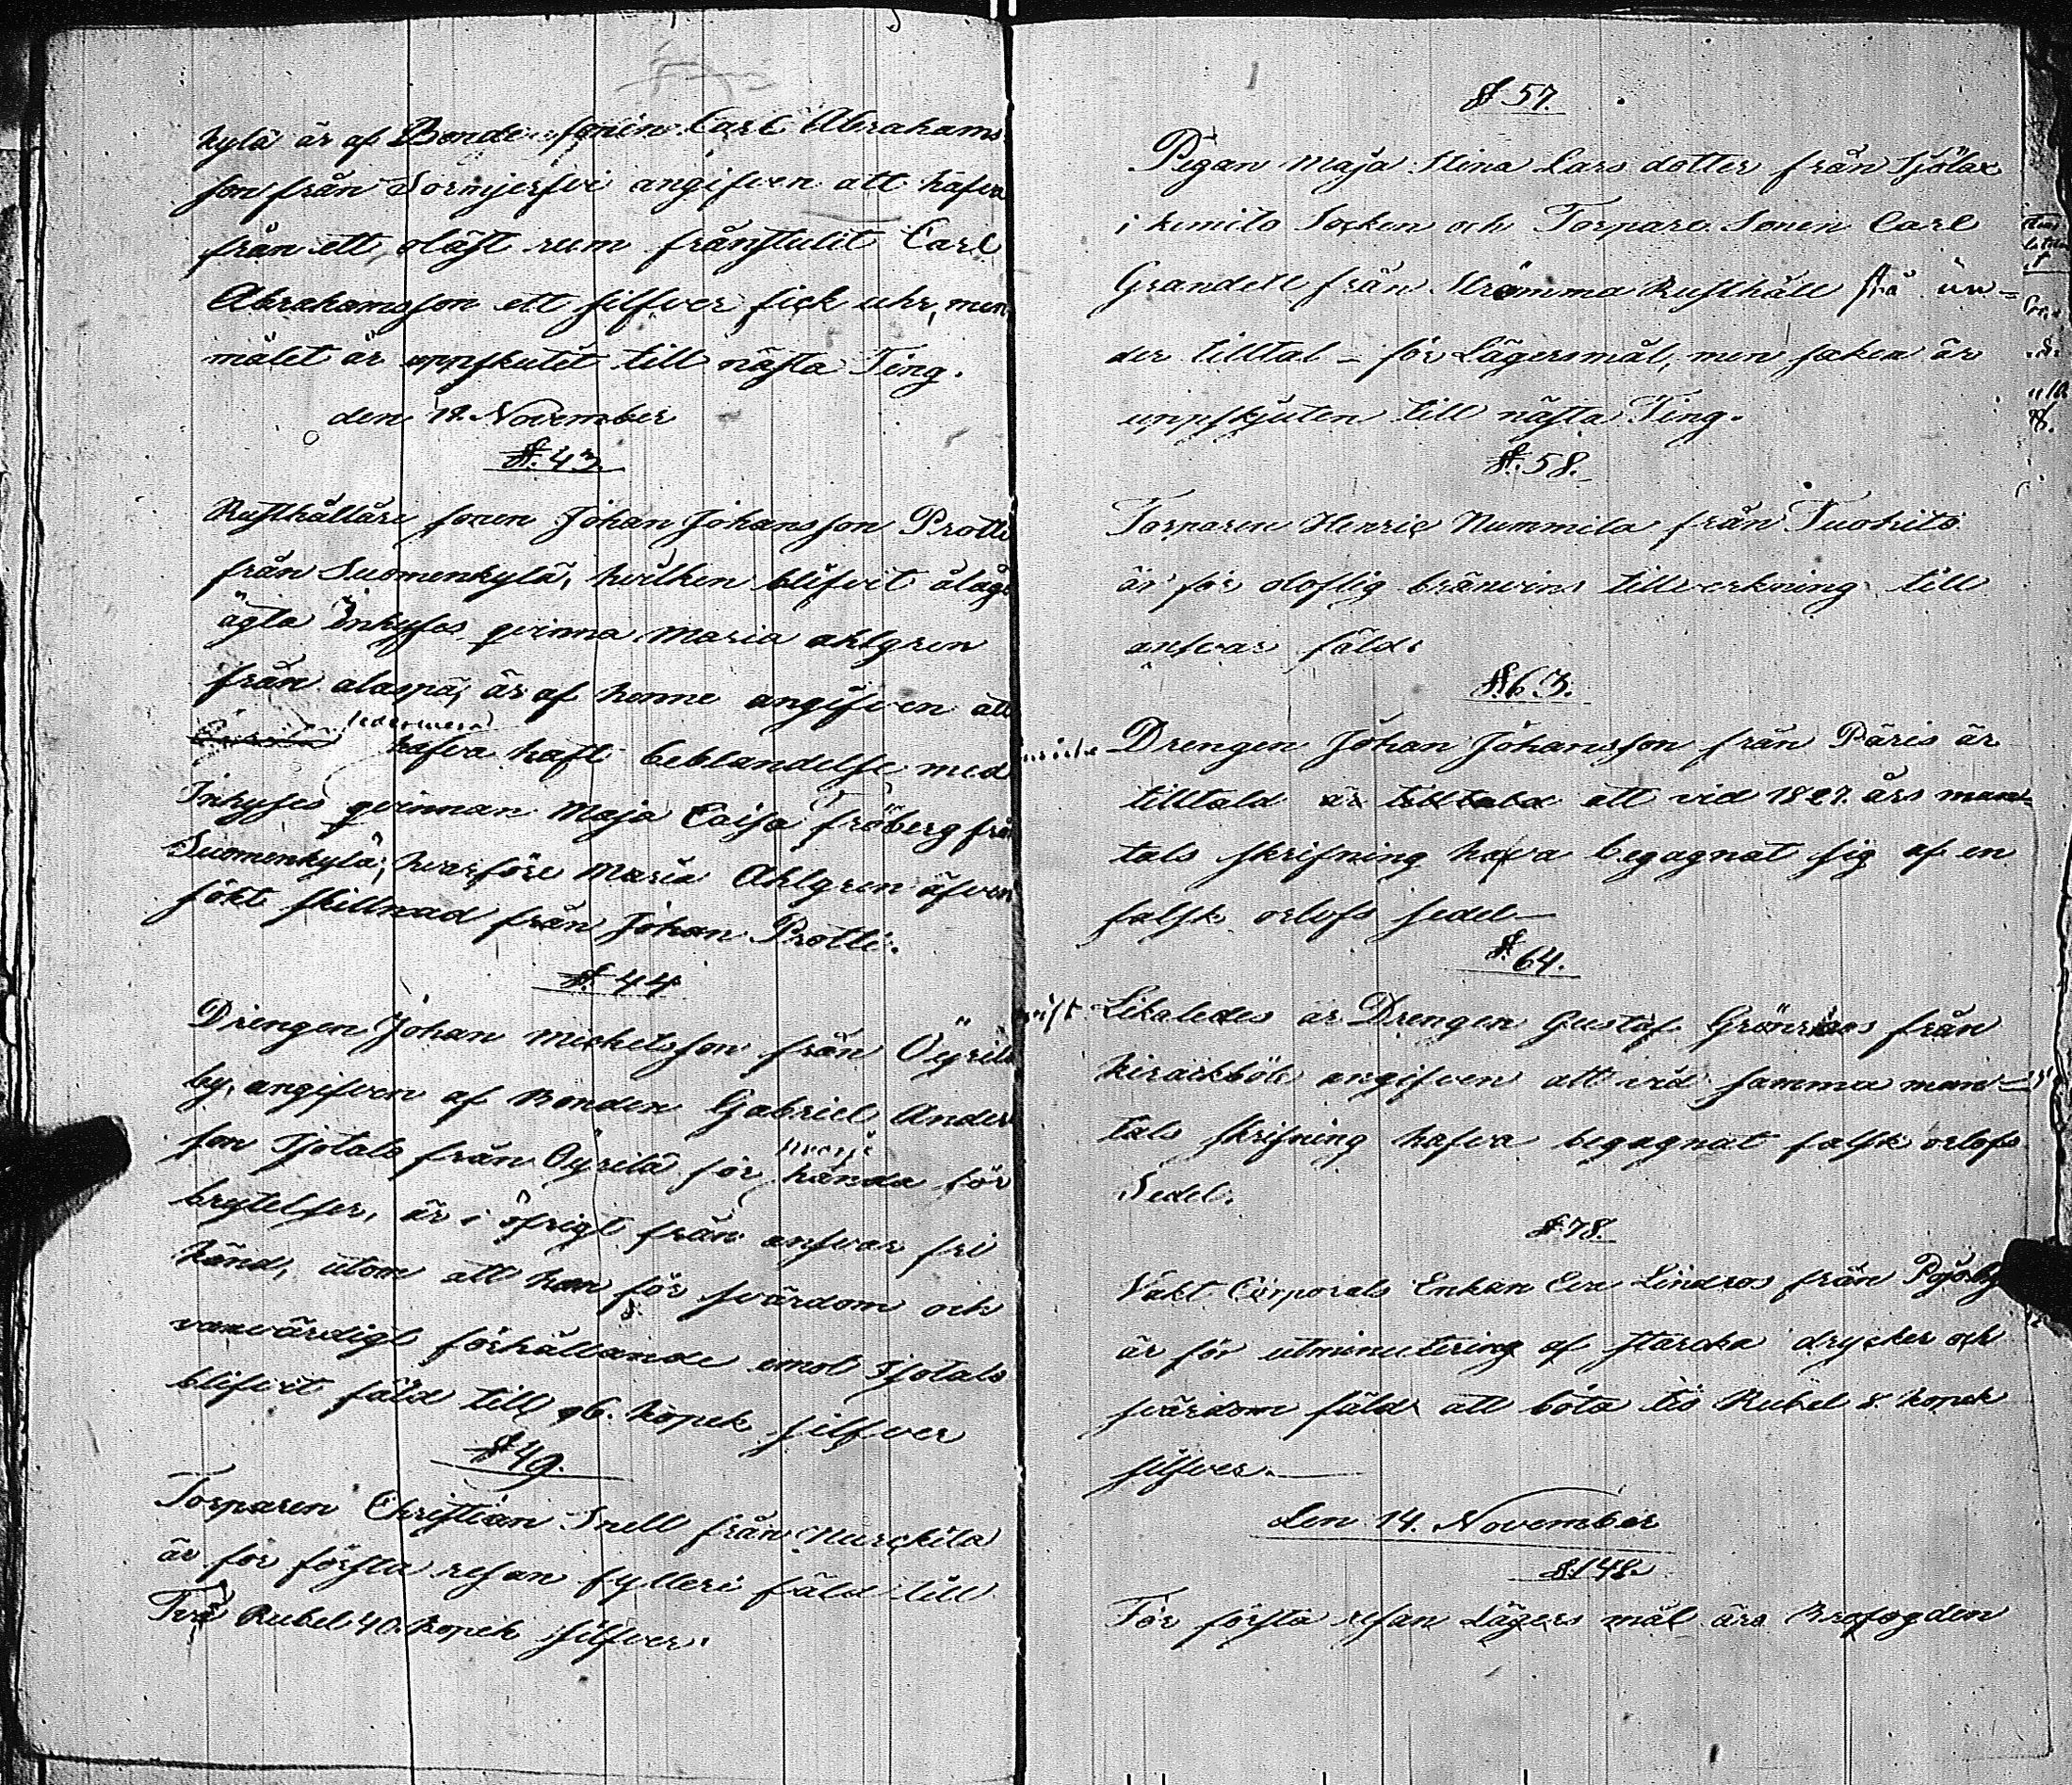 kylä är af Bonde sonen Carl Abrahams
son från Sormjerfvi angifven att hafva
från ett oläst rum frånstulit Carl
Abrahamsson ett silfver fick uhr, men
målet är uppskutet till nästa Ting.
den 12. November
§. 43.
Rusthållare sonen Johan Johansson Protti
från Suomenkylä, hvilken blifvit ålagd
ägta Inhyses qvinna Maria Ahlgren
från alaspä, är af henne angifven att
hafva haft beblandelse med
Inhyses qvinnan Maja Caisa Fröberg från
Suomenkylä; hvarföre Maria Ahlgren äfven
sökt skillnad från Johan Protti.
§. 44
Drengen Johan Michelsson från Öyrilä
by, angifven af Bonden Gabriel Anders
son Tjotals från Öyrilä för hända för
brytelser, är i öfrigt från ansvar fri
känd, utom att han för svärdom och
vanvärdigt förhållande emot Tjotals
blifvit fäld till 96. kopek silfver
§ 49.
Torparen Christian Snell från Nurckila
är för första resan fylleri fäld till
Två Rubel 40. kopek silfver.
§ 57.
Pigan Maja Stina Lars dotter från Sjölax
i kimito Socken och Torpare Sonen Carl
Grandell från Strömma Rusthåll stå un-
der tilltal för Lägersmål, men saken är
uppskjuten till nästa Ting.
§. 58.
Torparen Henric Nummila från Tuohito
är för oloflig bränvins tillverkning till
ansvar fäld.
§. 63.
Drengen Johan Johansson från Päris är
tilltald att vid 1827. års man-
tals skrifning hafva begagnat sig af en
falsk orlofs sedel
§. 64.
Likaledes är Drengen Gustaf Grönroos från
kirackböle angifven att vid samma man-
tals skrifning hafva begagnat falsk orlofs
Sedel.
§. 78.
Vakt Corporals Enkan Eva Lindros från Pojoby
är för utminutering af starcka drycker och
svärdom fäld att böta tio Rubel 8. kopek
silfver.
den 14. November
§. 148.
För första resan Lägers mål äro krofogden